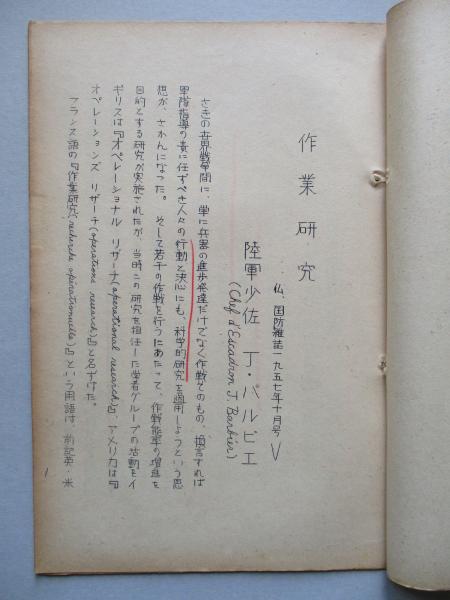 作業研究
仏、国防雑誌一九五七年十月号
陸軍少佐 J・バルビエ
(Chef d'Escadron J. Barbier)
さきの世界戦争間に、単に兵器の進歩発達だけでなく作戦そのもの、換言すれば
軍隊指導の責に任ずべき人々の行動と決心にも、科学的研究を適用しようという思
想が、さかんになった。そして若干の作戦を行うにあたって、作戦能率の増進を
目的とする研究が実施されたが、当時この研究を担任した学者グループの活動をイ
ギリスは『オペレーショナル リザーチ(operational research)』、アメリカは『
オペレーションズ リザーチ(operations research)』と名ずけた。
フランス語の『作業研究(recherche opérationnelle)』という用語は、前記英・米
1